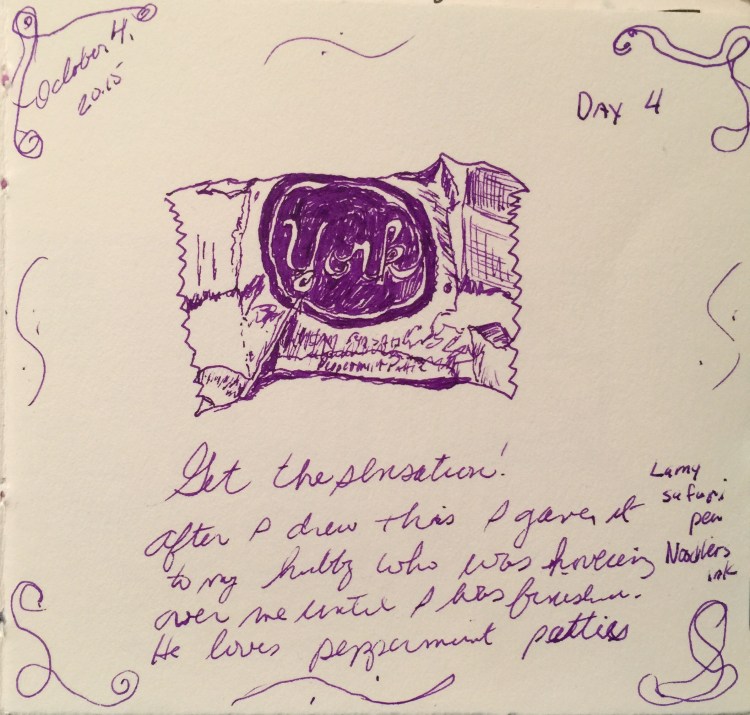 October 4,
2015
Day 4
York
Peppermint Pattie
Get the sensation!
after I drew this I gave it
to my hubby who was hovering
over me until I was finished.
He loves peppermint patties
Lamy
safari
pen
Noodlers
ink